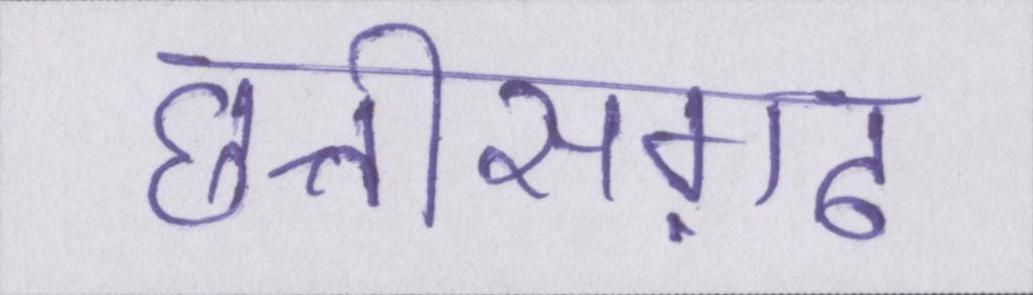 छत्तीसग़ढ